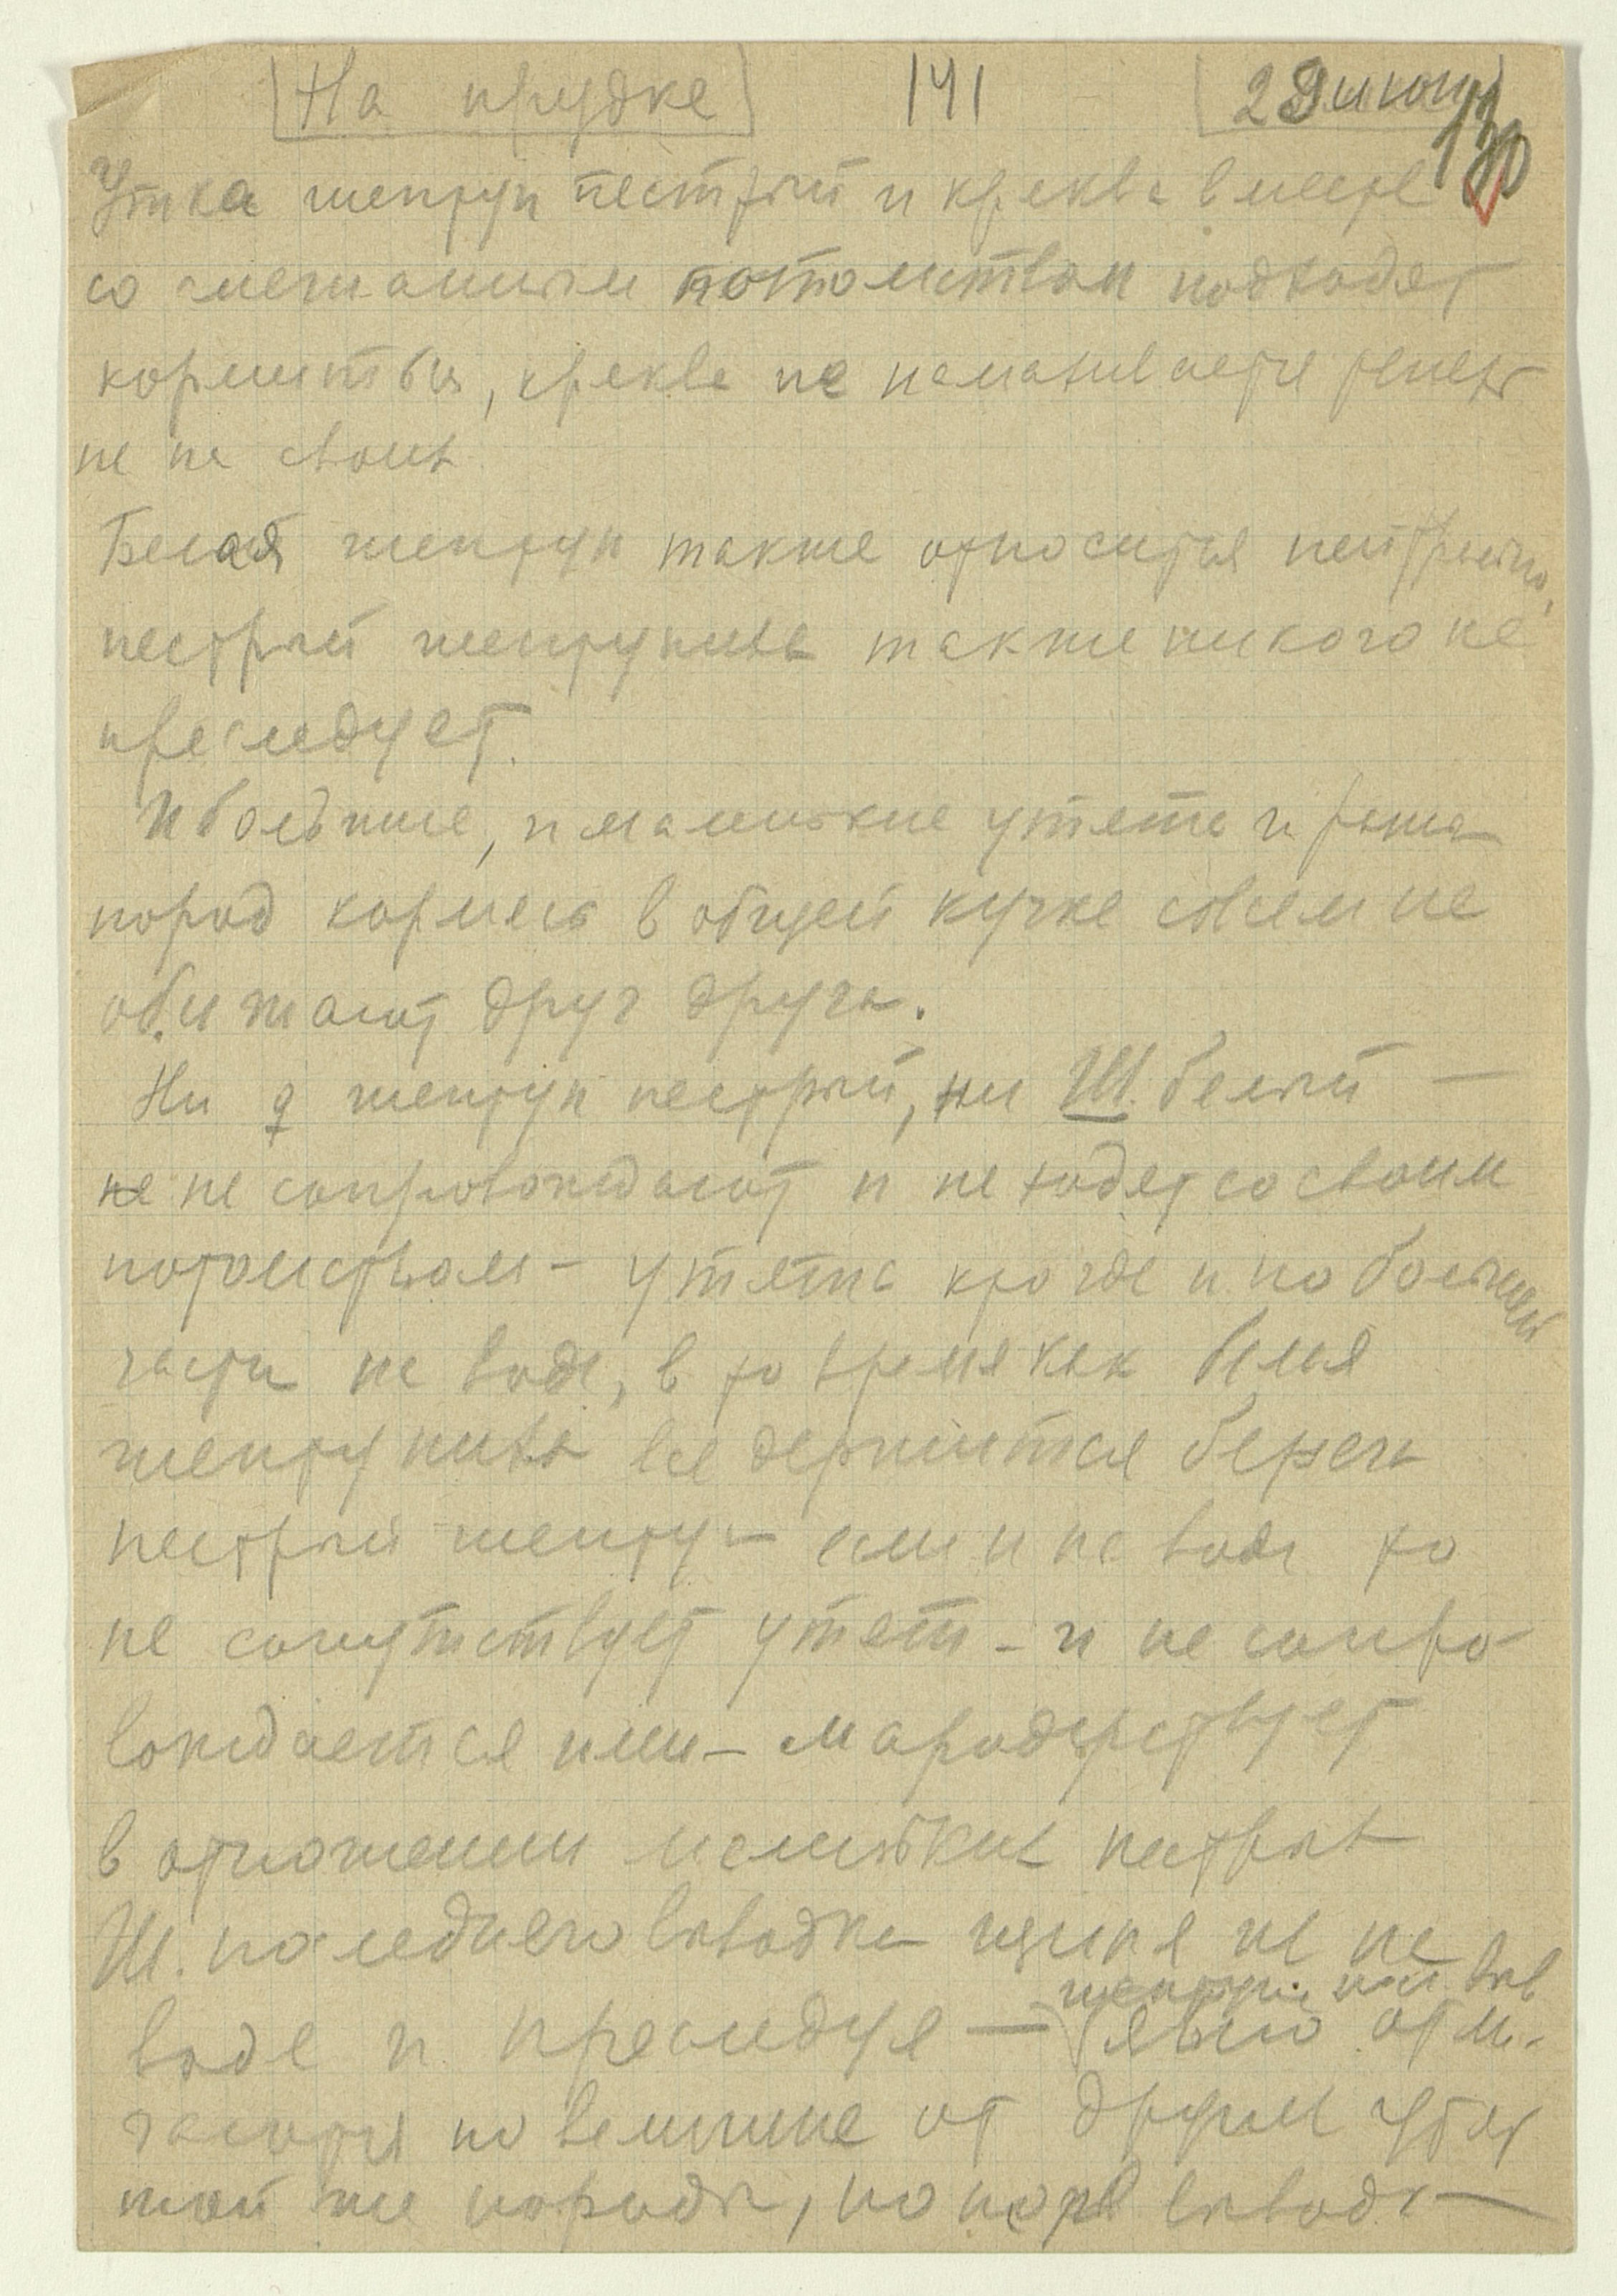 На прудке 141 29 июня
130
Утка шептун пестрый и кряква вместе
со смешанным потомством подходят
кормиться, кряква не налаживается теперь
не на своих
Белая шептун также относится нейтрально,
пестрый шептуниха также никого не
преследует.
И большие, и маленькие утята и разн
пород кормясь в общей кучке совсем не
обижают друг друга.
Ни ♀ шептун пестрый, ни Ш. белый —
не не сопровождают и не ходят со своим
потомством – утята кто где и по большей
части на воде, в то время как белая
шептуниха все держится берега
пестрый шептун – если и на воде то
не сопутствует утят – и не сопро
вождается ими – мародерствует
в отношении маленьких пестрых
Ш. последнего выводка щипля их на
воде и преследуя —
явно отли-
чаются по величине от других утят
той же породы, но перв выводк —